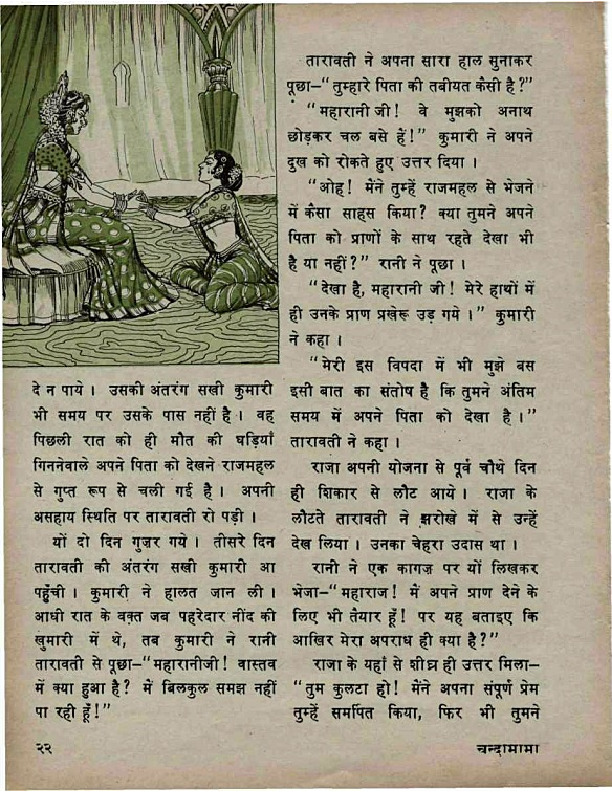 दे न पाये । उसकी अंतरंग सखी कुमारी
भी समय पर उसके पास नहीं है । वह
पिछली रात को ही मौत की घड़ियाँ
गिननेवाले अपने पिता को देखने राजमहल
से गुप्त रूप से चली गई है । अपनी
असहाय स्थिति पर तारावती रो पड़ी ।
यों दो दिन गुज़र गये । तीसरे दिन
तारावती की अंतरंग सखी कुमारी आ
पहुँची । कुमारी ने हालत जान ली ।
आधी रात के वक़्त जब पहरेदार नींद की
खुमारी में थे, तब कुमारी ने रानी
तारावती से पूछा–“महारानीजी! वास्तव
में क्या हुआ है? में बिलकुल समझ नहीं
पा रही हूँ!”
तारावती ने अपना सारा हाल सुनाकर
पूछा–“तुम्हारे पिता की तबीयत कैसी है?”
“महारानी जी! वे मुझको अनाथ
छोड़कर चल बसे हें!” कुमारी ने अपने
दुख को रोकते हुए उत्तर दिया ।
“ओह! मेंने तुम्हें राजमहल से भेजने
में कैसा साहस किया? क्या तुमने अपने
पिता को प्राणों के साथ रहते देखा भी
है या नहीं?” रानी ने पूछा ।
“देखा है, महारानी जी! मेरे हाथों में
ही उनके प्राण प्रखेरू उड़ गये ।” कुमारी
ने कहा ।
“मेरी इस विपदा में भी मुझे बस
इसी बात का संतोष है कि तुमने अंतिम
समय में अपने पिता को देखा है ।”
तारावती ने कहा ।
राजा अपनी योजना से पूर्व चौथे दिन
ही शिकार से लौट आये । राजा के
लौटते तारावती ने झरोखे में से उन्हें
देख लिया । उनका चेहरा उदास था ।
रानी ने एक कागज़ पर यों लिखकर
भेजा–“महाराज! में अपने प्राण देने के
लिए भी तैयार हूँ! पर यह बताइए कि
आखिर मेरा अपराध ही क्या है?”
राजा के यहाँ से शीघ्र ही उत्तर मिला–
“तुम कुलटा हो! मेंने अपना संपूर्ण प्रेम
तुम्हें समर्पित किया, फिर भी तुमने
२२
चन्दामामा